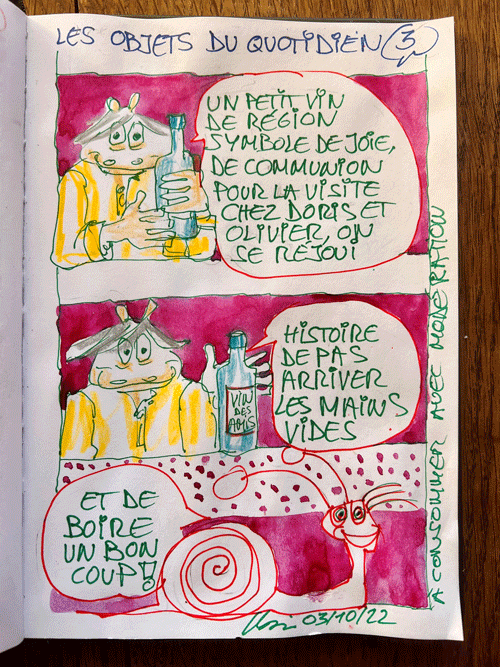 LES OBJETS DU QUOTIDIEN (3)
UN PETIT VIN
DE RÉGION
SYMBOLE DE JOIE,
DE COMMUNION
POUR LA VISITE
CHEZ DORIS ET
OLIVIER, ON
SE RÉJOUI
HISTOIRE
DE PAS
ARRIVER
LES MAINS
VIDES
VIN
DES
AMIS
ET DE
BOIRE
UN BON
COUP!
03/10/22
À CONSOMMER AVEC MODÉRATION